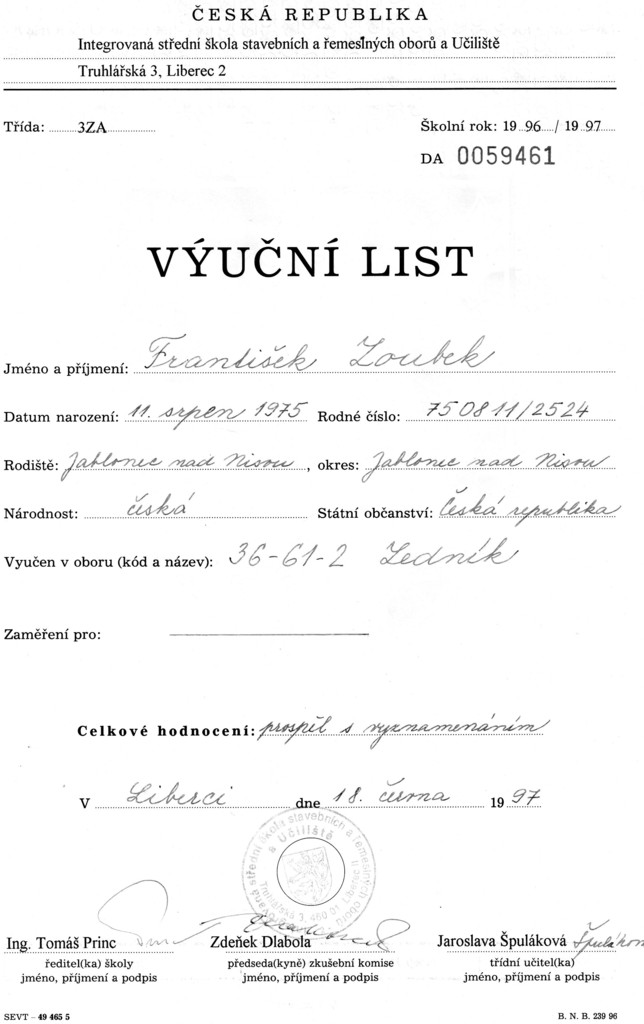 ČESKÁ REPUBLIKA
Integrovaná střední škola stavebních a řemeslných oborů a Učiliště
Truhlářská 3, Liberec 2
Třída: 3ZA Školní rok: 19 96 / 19 97
DA 0059461
VÝUČNÍ LIST
Jméno a příjmení: František Zoubek
Datum narození: 11. srpen 1975 Rodné číslo: 750811/2524
Rodiště: Jablonec nad Nisou, okres: Jablonec nad Nisou
Národnost: česká Státní občanství: Česká republika
Vyučen v oboru (kód a název): 36-61-2 Zedník
Zaměření pro:
Celkové hodnocení: prospěl s vyznamenáním
V Liberci dne 18. června 19 97
střední škola stavebních a řemeslných oborů
a Učiliště
Truhlářská 3, 460 01 Liberec II
Ing. Tomáš Princ Zdeňek Dlabola Jaroslava Špuláková Špuláková
ředitel(ka) školy předseda(kyně) zkušební komise třídní učitel(ka)
jméno, příjmení a podpis jméno, příjmení a podpis jméno, příjmení a podpis
SEVT – 49 465 5 B. N. B. 239 96